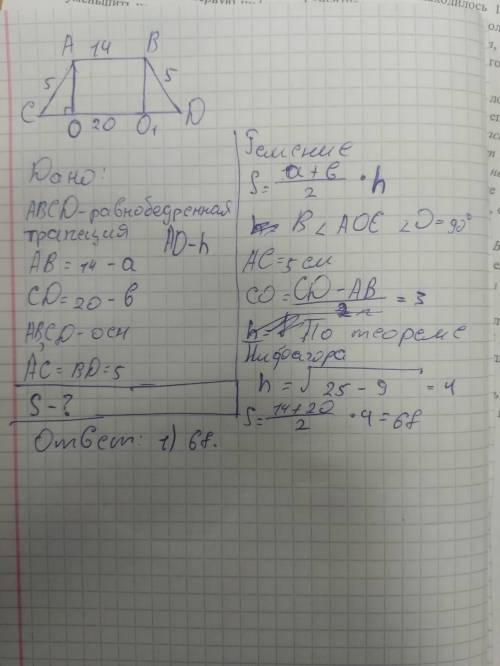 A 14 B
5 5
C O 20 O₁ D
Дано:
ABCD-равнобедренная
трапеция AO-h
AB = 14 - a
CD = 20 - в
AB,CD-осн
AC = BD = 5
S - ?
Ответ: 1) 68.
Решение
S = (a + в)/2 · h
В < AOC <O = 90°
AC = 5 см
CO = (CD - AB)/2 = 3
По теореме
Пифагора
h = √25 - 9 = 4
S = (14 + 20)/2 · 4 = 68